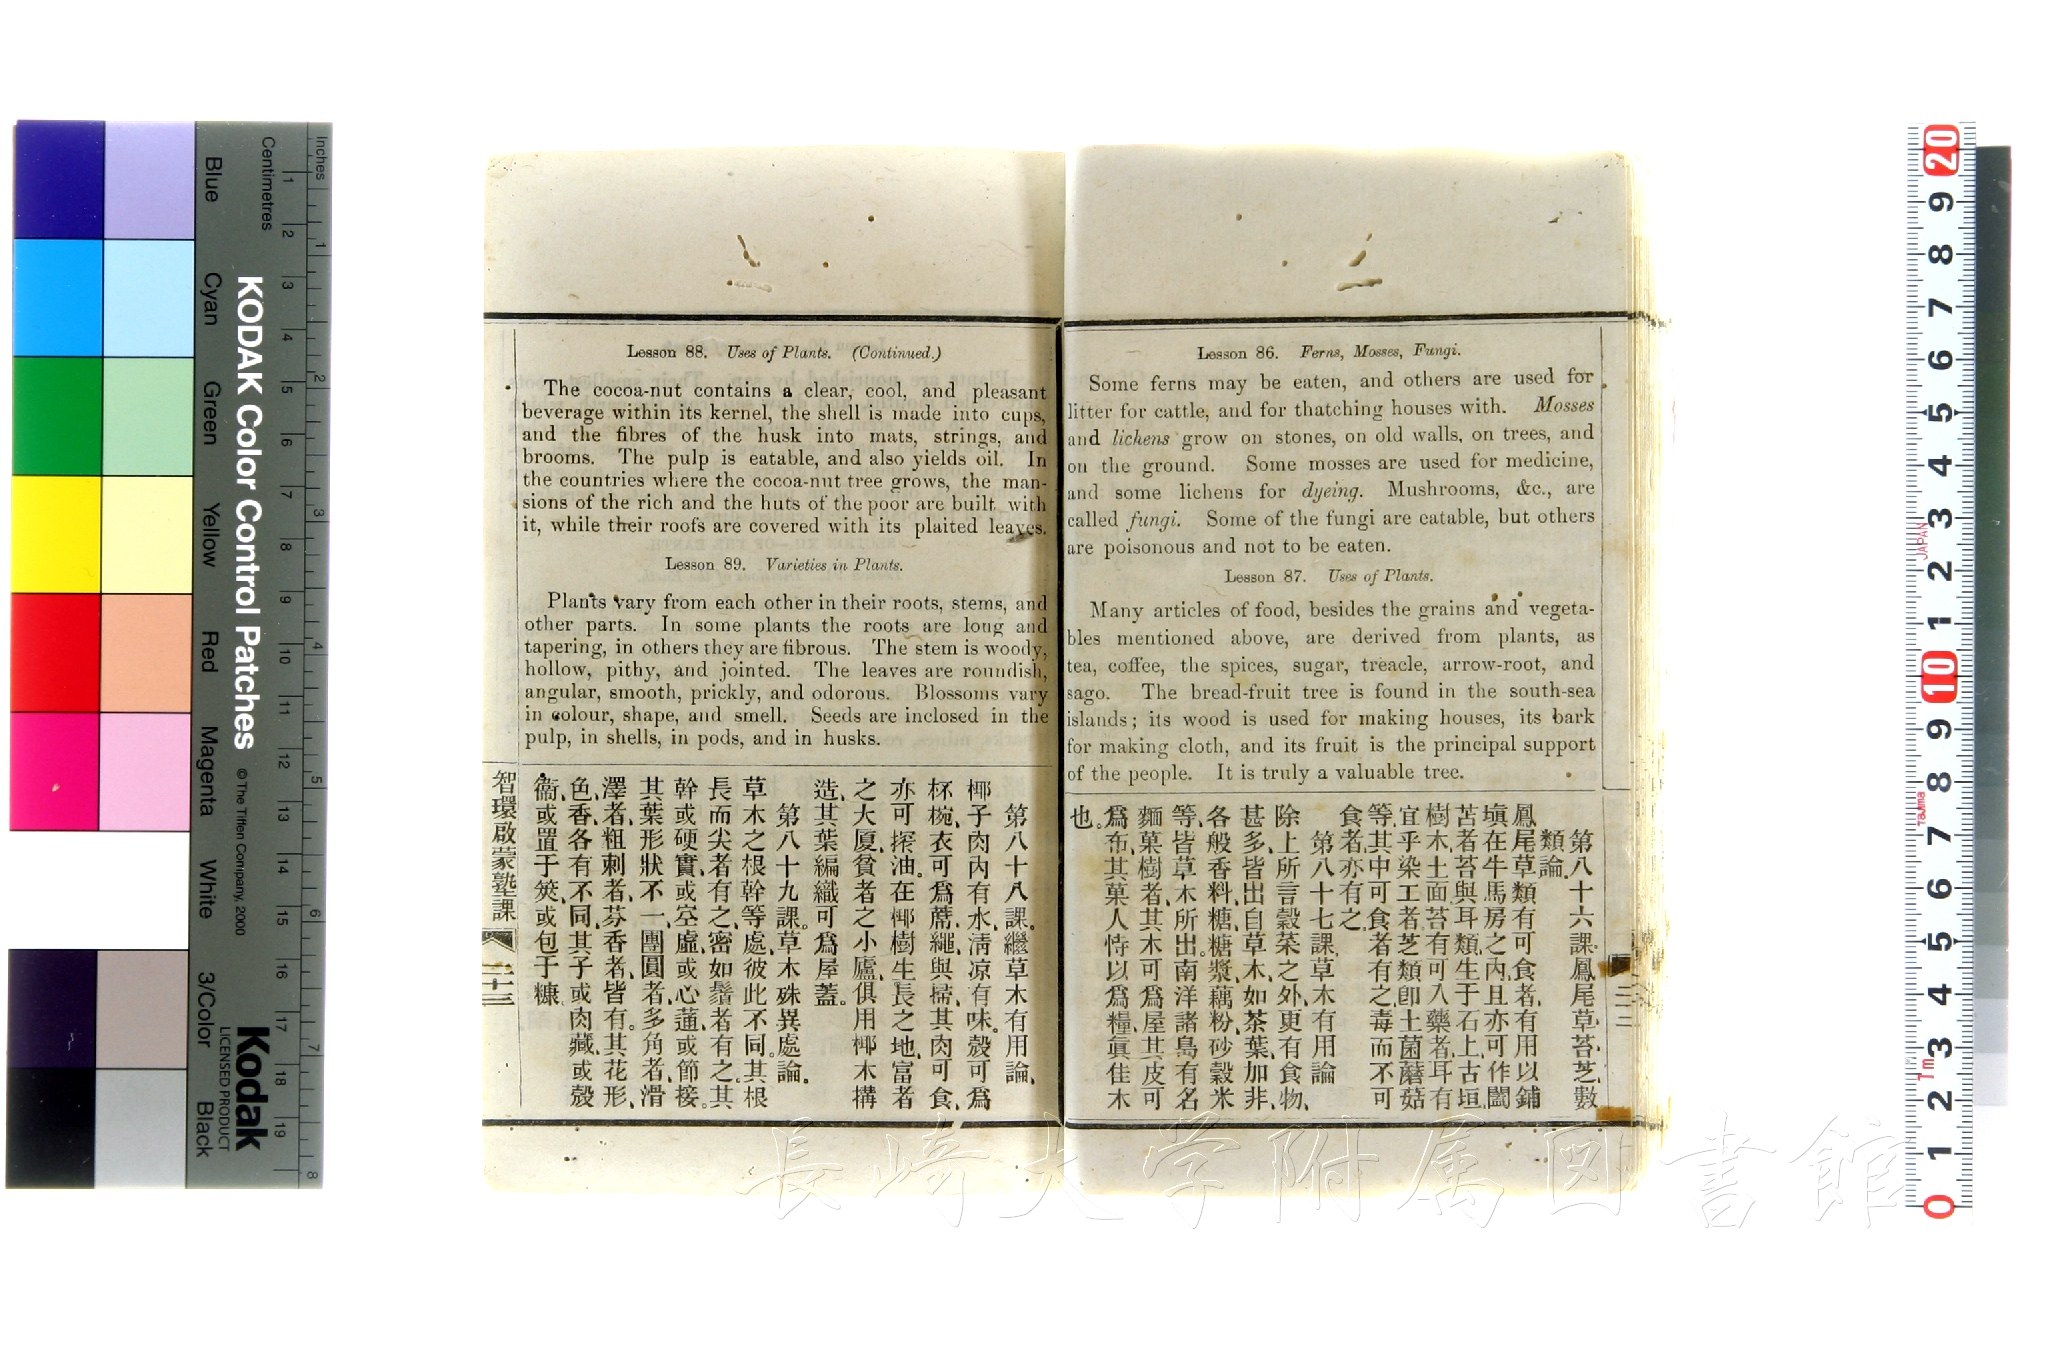 Lesson 86. Ferns, Mosses, Fungi.
Some ferns may be eaten, and others are used for
litter for cattle, and for thatching houses with. Mosses
and lichens grow on stones, on old walls, on trees, and
on the ground. Some mosses are used for medicine,
and some lichens for dyeing. Mushrooms, &c., are
called fungi. Some of the fungi are eatable, but others
are poisonous and not to be eaten.
Lesson 87. Uses of Plants.
Many articles of food, besides the grains and vegeta-
bles mentioned above, are derived from plants, as
tea, coffee, the spices, sugar, treacle, arrow-root, and
sago. The bread-fruit tree is found in the south-sea
islands; its wood is used for making houses, its bark
for making cloth, and its fruit is the principal support
of the people. It is truly a valuable tree.
第八十六課。鳳尾草、苔、芝、數
類論。
鳳尾草類有可食者、有用以鋪
塡在牛馬房之內、且亦可作闔
苫者、苔與耳類、生于石上、古垣、
樹木、土面、苔有可入藥者、耳有
宜乎染工者、芝類卽土菌蘑菇
等、其中可食者有之、毒而不可
食者、亦有之。
第八十七課。草木有用論
除上所言穀菜之外、更有食物、
甚多、皆出自草木、如茶葉、加非、
各般香料、糖、糖漿、藕粉、砂穀米
等、皆草木所出。南洋諸島有名
麵菓樹者、其木可爲屋、其皮可
爲布、其菓人恃以爲糧、眞佳木
也。
Lesson 88. Uses of Plants. (Continued.)
The cocoa-nut contains a clear, cool, and pleasant
beverage within its kernel, the shell is made into cups,
and the fibres of the husk into mats, strings, and
brooms. The pulp is eatable, and also yields oil. In
the countries where the cocoa-nut tree grows, the man-
sions of the rich and the huts of the poor are built with
it, while their roofs are covered with its plaited leaves.
Lesson 89. Varieties in Plants.
Plants vary from each other in their roots, stems, and
other parts. In some plants the roots are long and
tapering, in others they are fibrous. The stem is woody,
hollow, pithy, and jointed. The leaves are roundish,
angular, smooth, prickly, and odorous. Blossoms vary
in colour, shape, and smell. Seeds are inclosed in the
pulp, in shells, in pods, and in husks.
第八十八課。繼草木有用論、
椰子肉內有水、清凉有味。殼可爲
杯椀、衣可爲蓆、繩、與帚、其肉可食、
亦可搾油。在椰樹生長之地、富者
之大厦、貧者之小廬、俱用椰木構
造、其葉編織可爲屋蓋。
第八十九課。草木殊異處論。
草木之根幹等處、彼此不同。其根
長而尖者有之、密如鬚者有之。其
幹或硬實、或空虛、或心蓪、或節接。
其葉形狀不一、團圓者、多角者、滑
澤者、粗刺者、芬香者、皆有。其花形、
色、香、各有不同、其子或肉藏、或殼
衞、或置于筴、或包于糠、
智環啟蒙塾課
二十三
KODAK Color Control Patches
© The Tiffen Company, 2000
Kodak
LICENSED PRODUCT
Inches
Centimetres
Blue
Cyan
Green
Yellow
Red
Magenta
White
3/Color
Black
1 2 3 4 5 6 7 8 9 10 11 12 13 14 15 16 17 18 19
1 2 3 4 5 6 7 8
20 9 8 7 6 5 4 3 2 1 10 9 8 7 6 5 4 3 2 1 0
JAPAN
TaJima
7m
長崎大学附属図書館